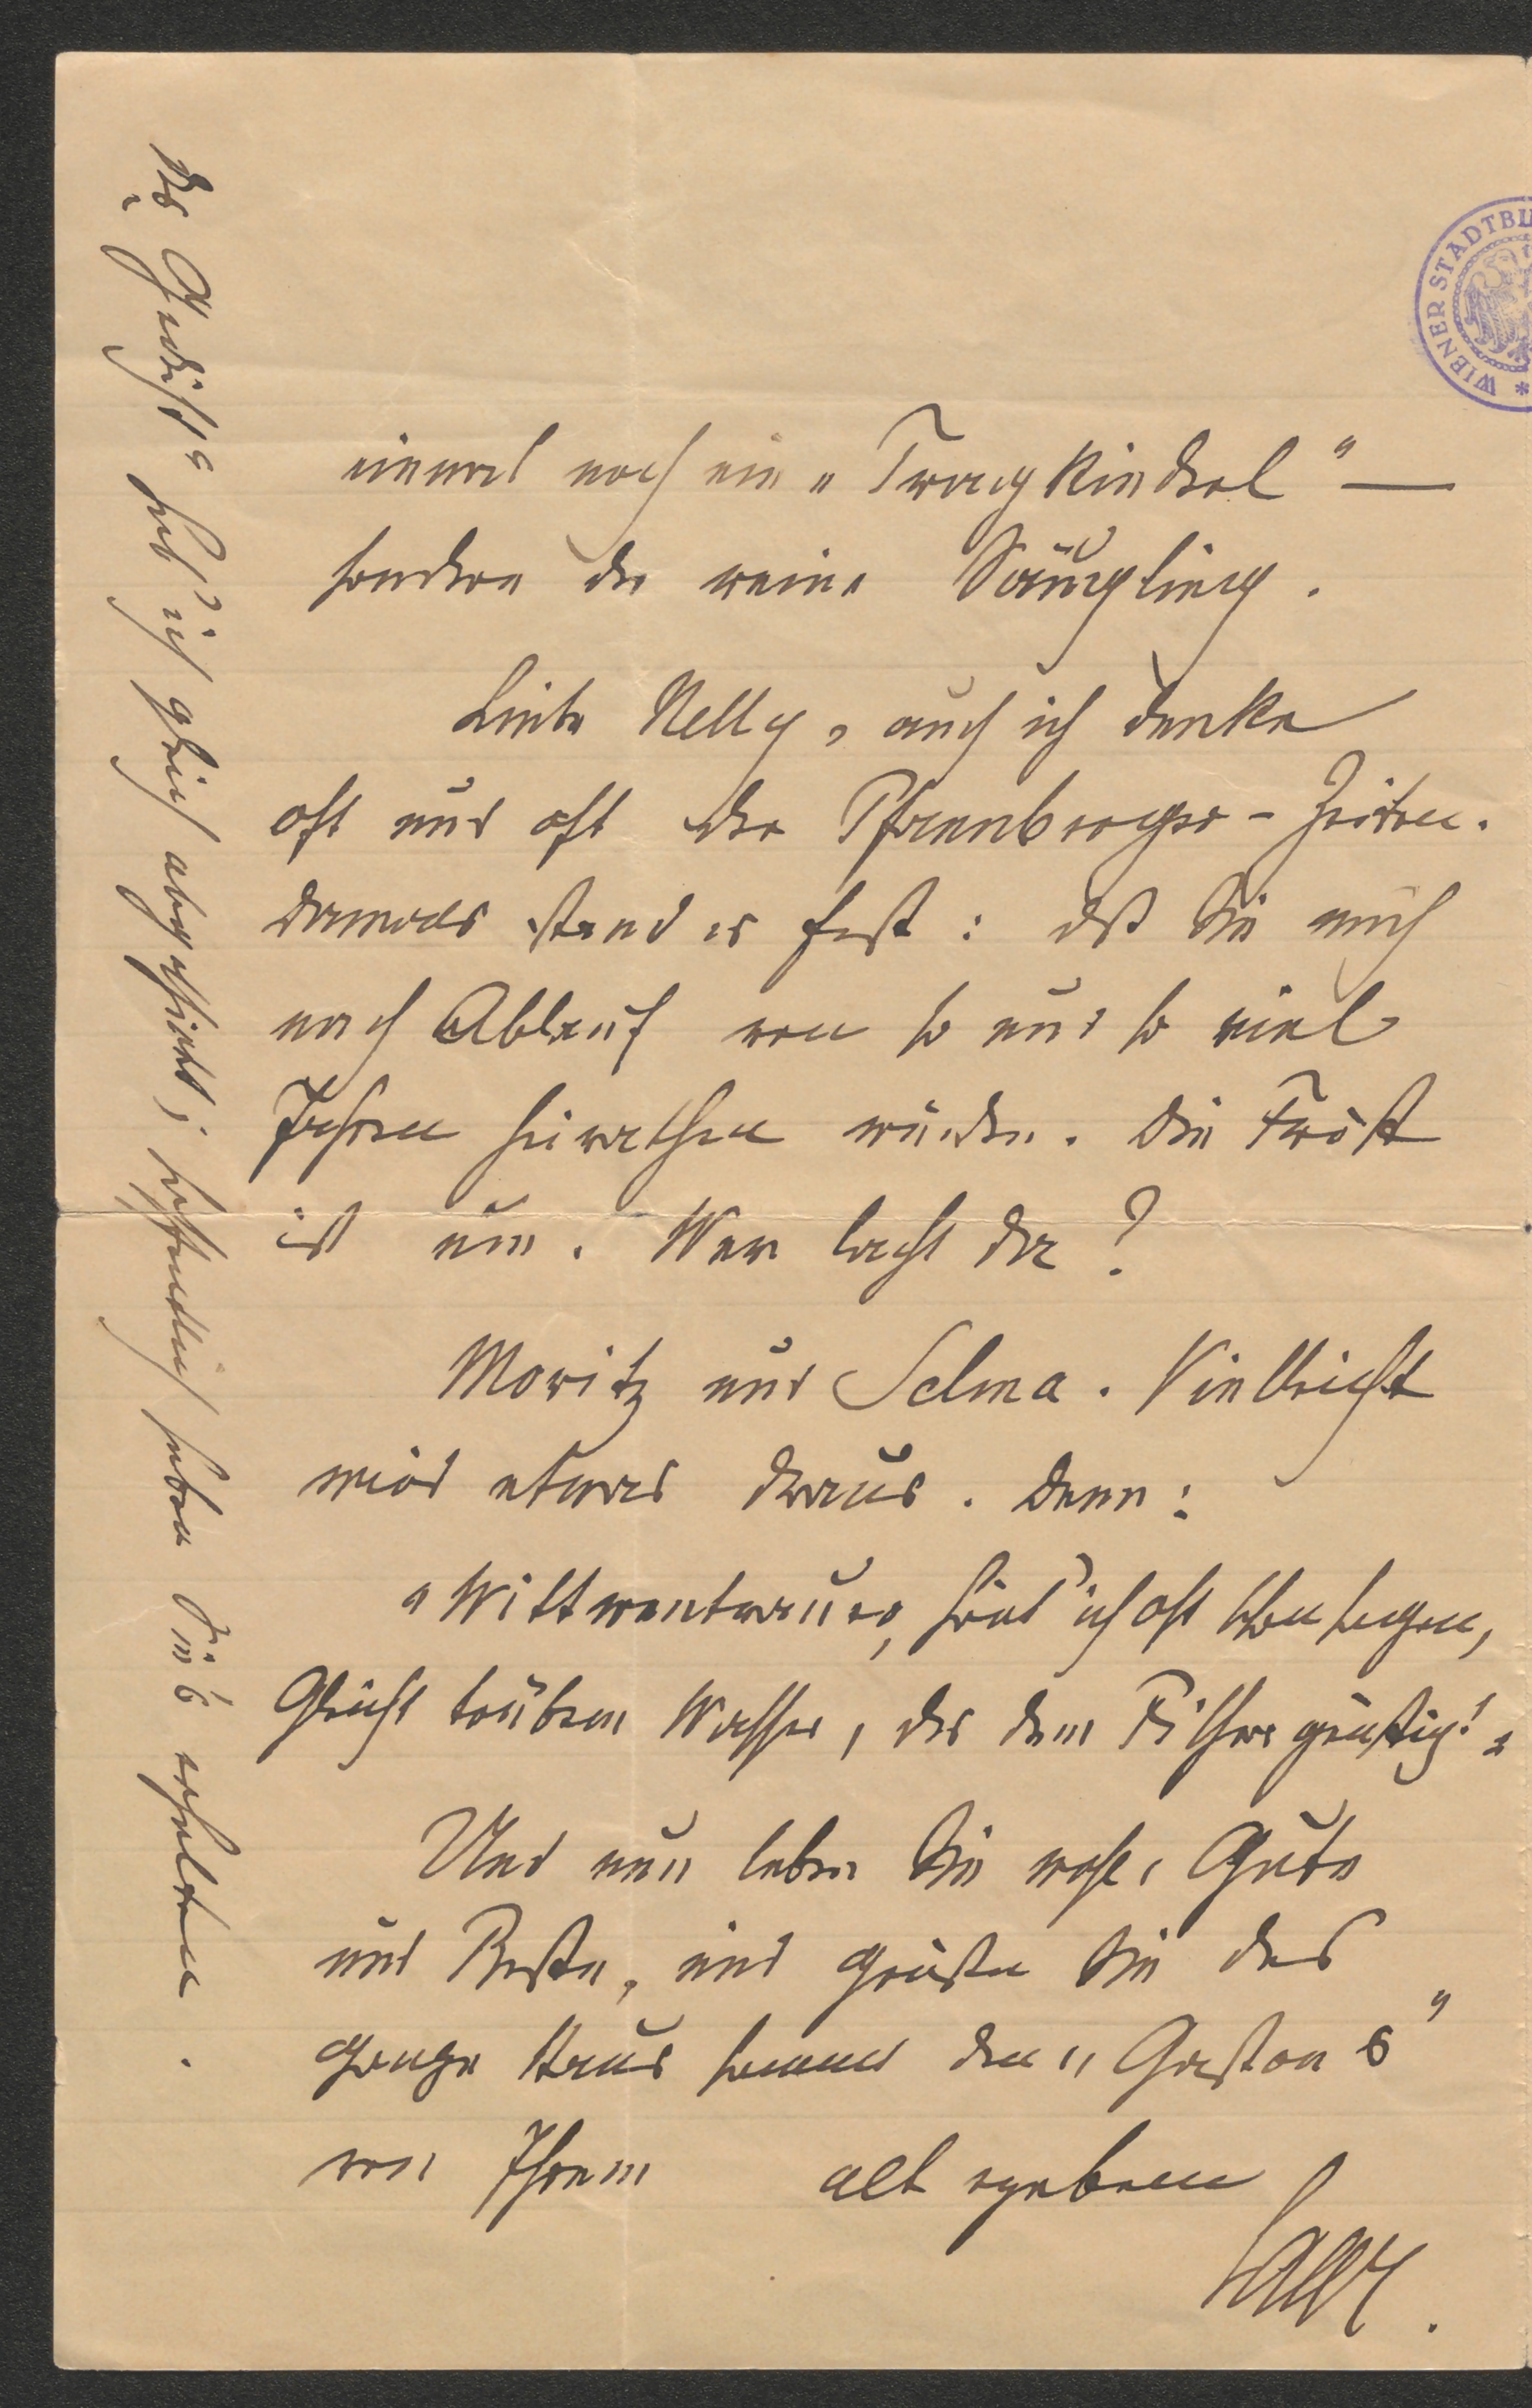 einmal noch ein „Tragkindel" —
sondern der reine Säugling.
Liebe Nelly, auch ich denke
oft und oft der Pfannberger-Zeiten.
Damals stand es fest: dß Sie mich
nach Ablauf von so und so viel
Jahren heirathen würden. Die Frist
ist um. Wer lacht da?
Moritz und Selma. Vielleicht
wird etwas daraus. Denn:
„Wittwentrauer, hört' ich oft schon sagen,
Gleicht trübem Wasser, das dem Fischer günstig!"
Und nun leben Sie wohl, Gute
und Beste, und grüßen Sie das
ganze Haus sammt den „Gästen"
von Ihrem alt ergebenen
Die Judith" hab' ich gleich abgeschickt; hoffentlich haben Sie's erhalten.
WIENER STADTBI